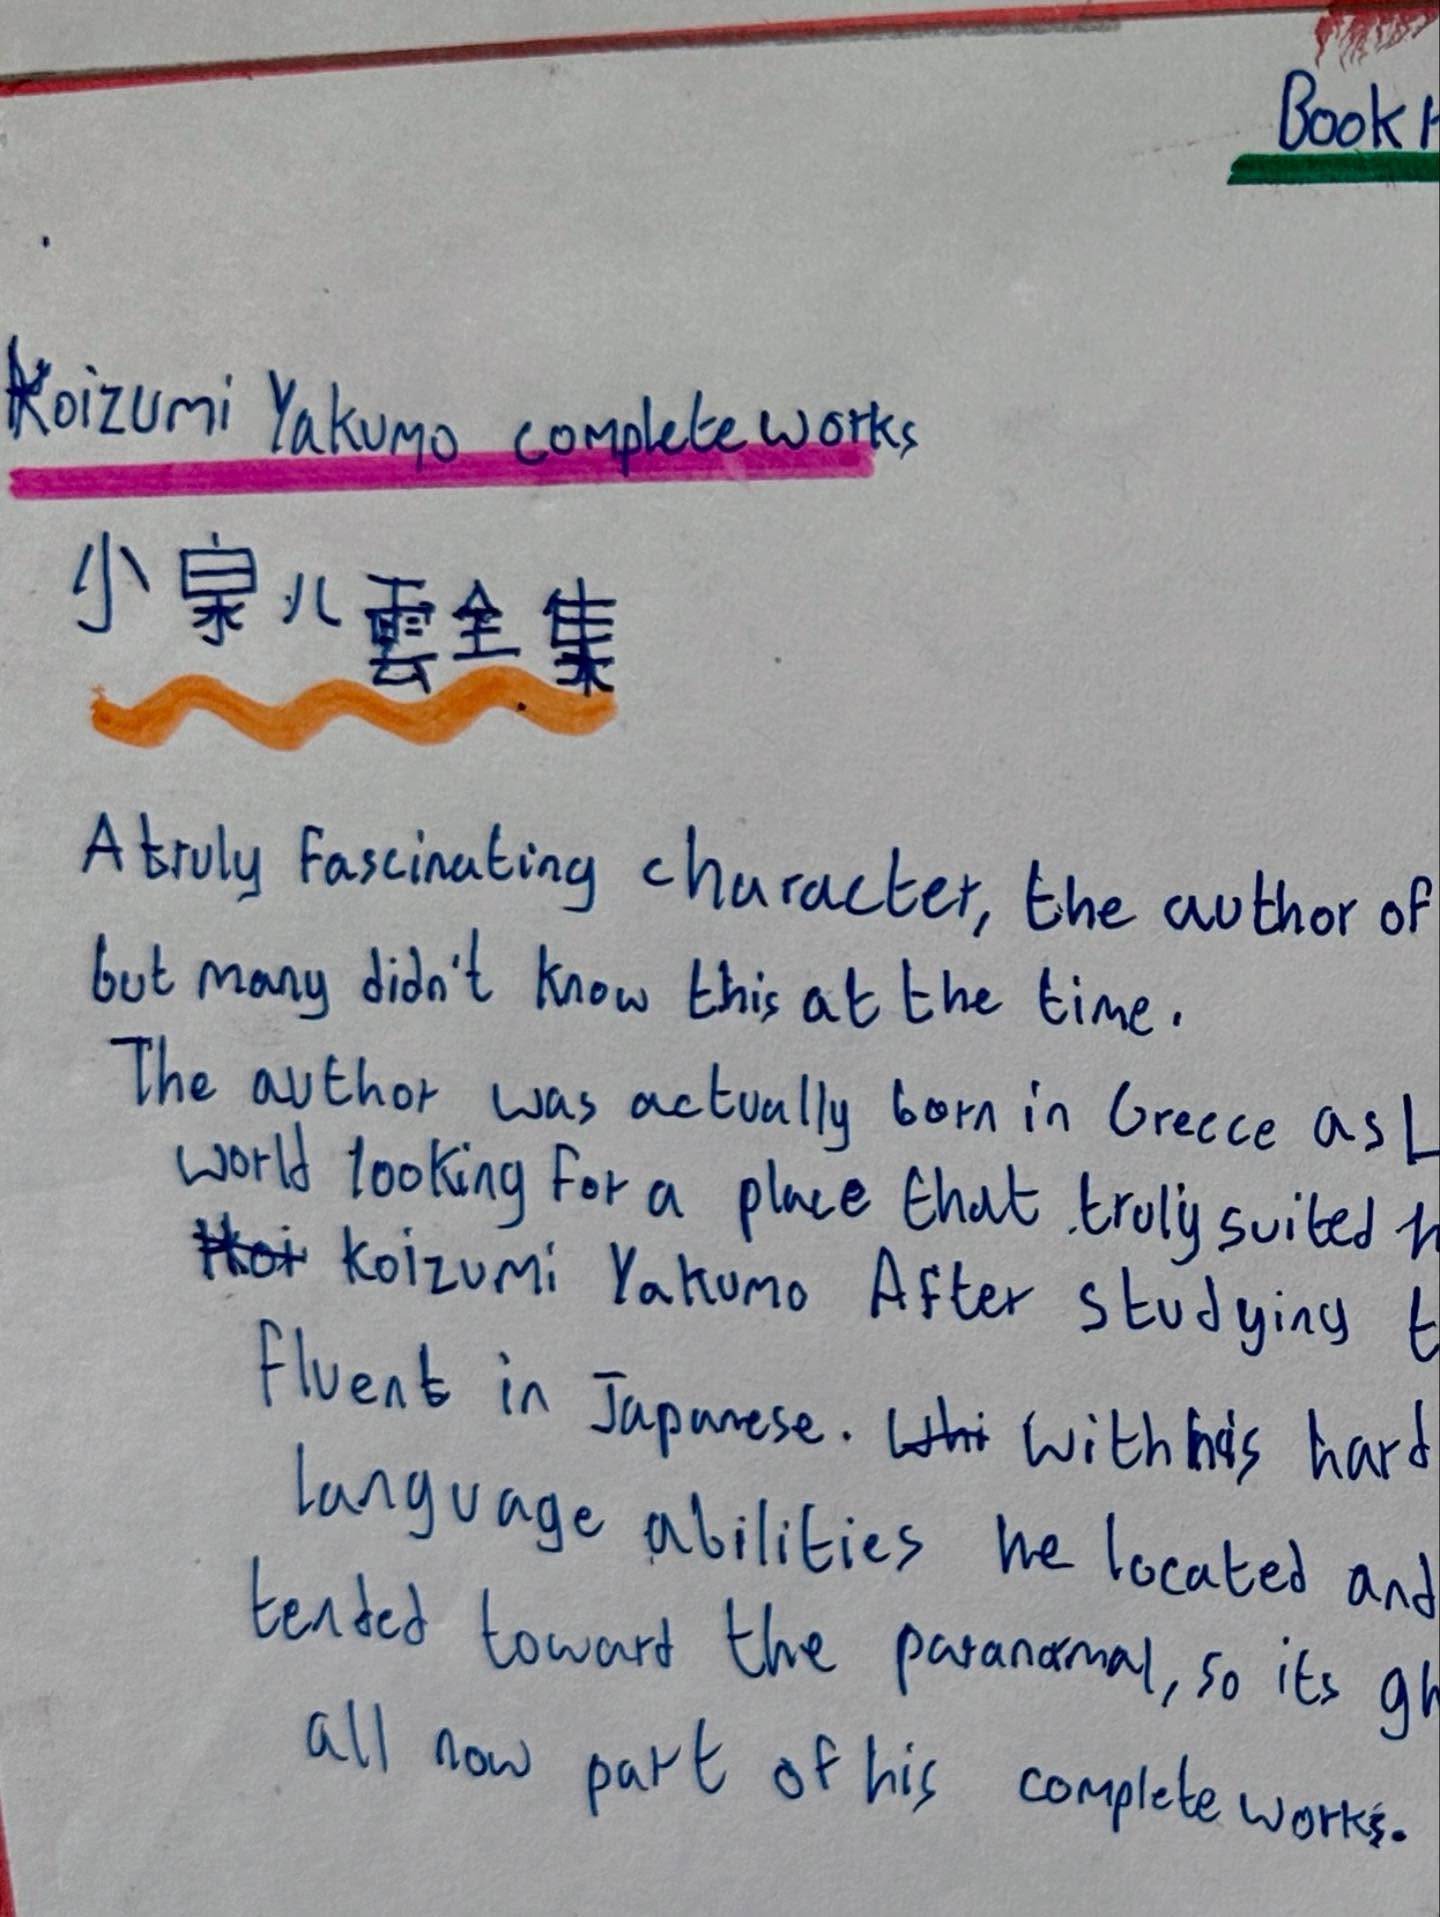 Book
Koizumi Yakumo complete works
小泉八雲全集
A truly fascinating character, the author of
but many didn't know this at the time.
The author was actually born in Greece as L
world looking for a place that truly suited h
Koizumi Yakumo After studying t
fluent in Japanese. With his hard
language abilities he located and
tended toward the paranormal, so its gh
all now part of his complete works.